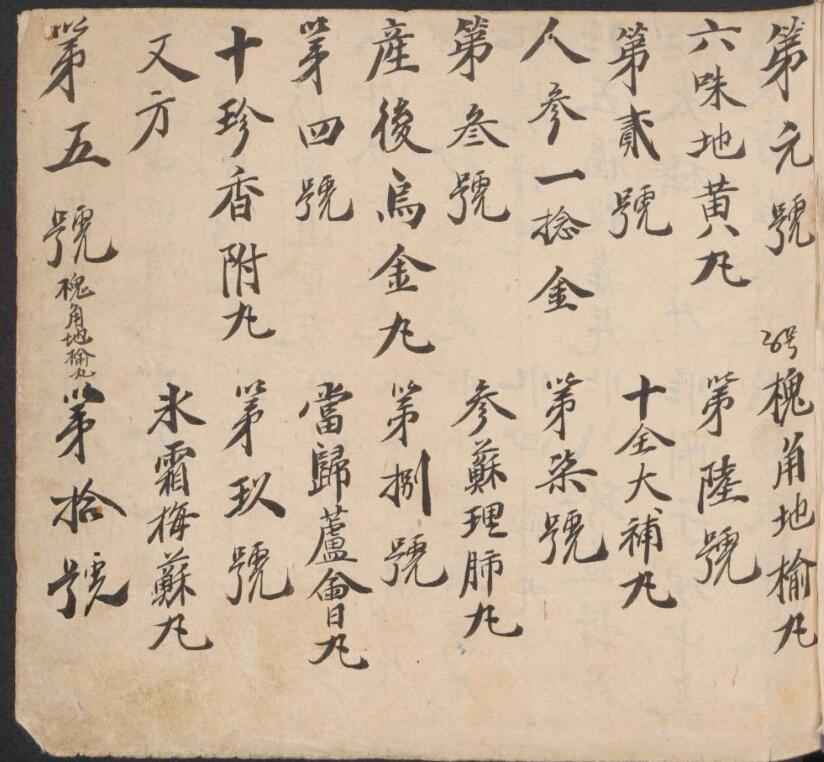 第元號
六味地黄丸
第貳號
人參一捻金
第叁號
產後烏金丸
第四號
十珍香附丸
又方
第五號
槐角地榆丸
槐角地榆丸
第陸號
十全大補丸
第柒號
參蘇理肺丸
第捌號
當歸蘆會丸
第玖號
氷霜梅蘇丸
第拾號